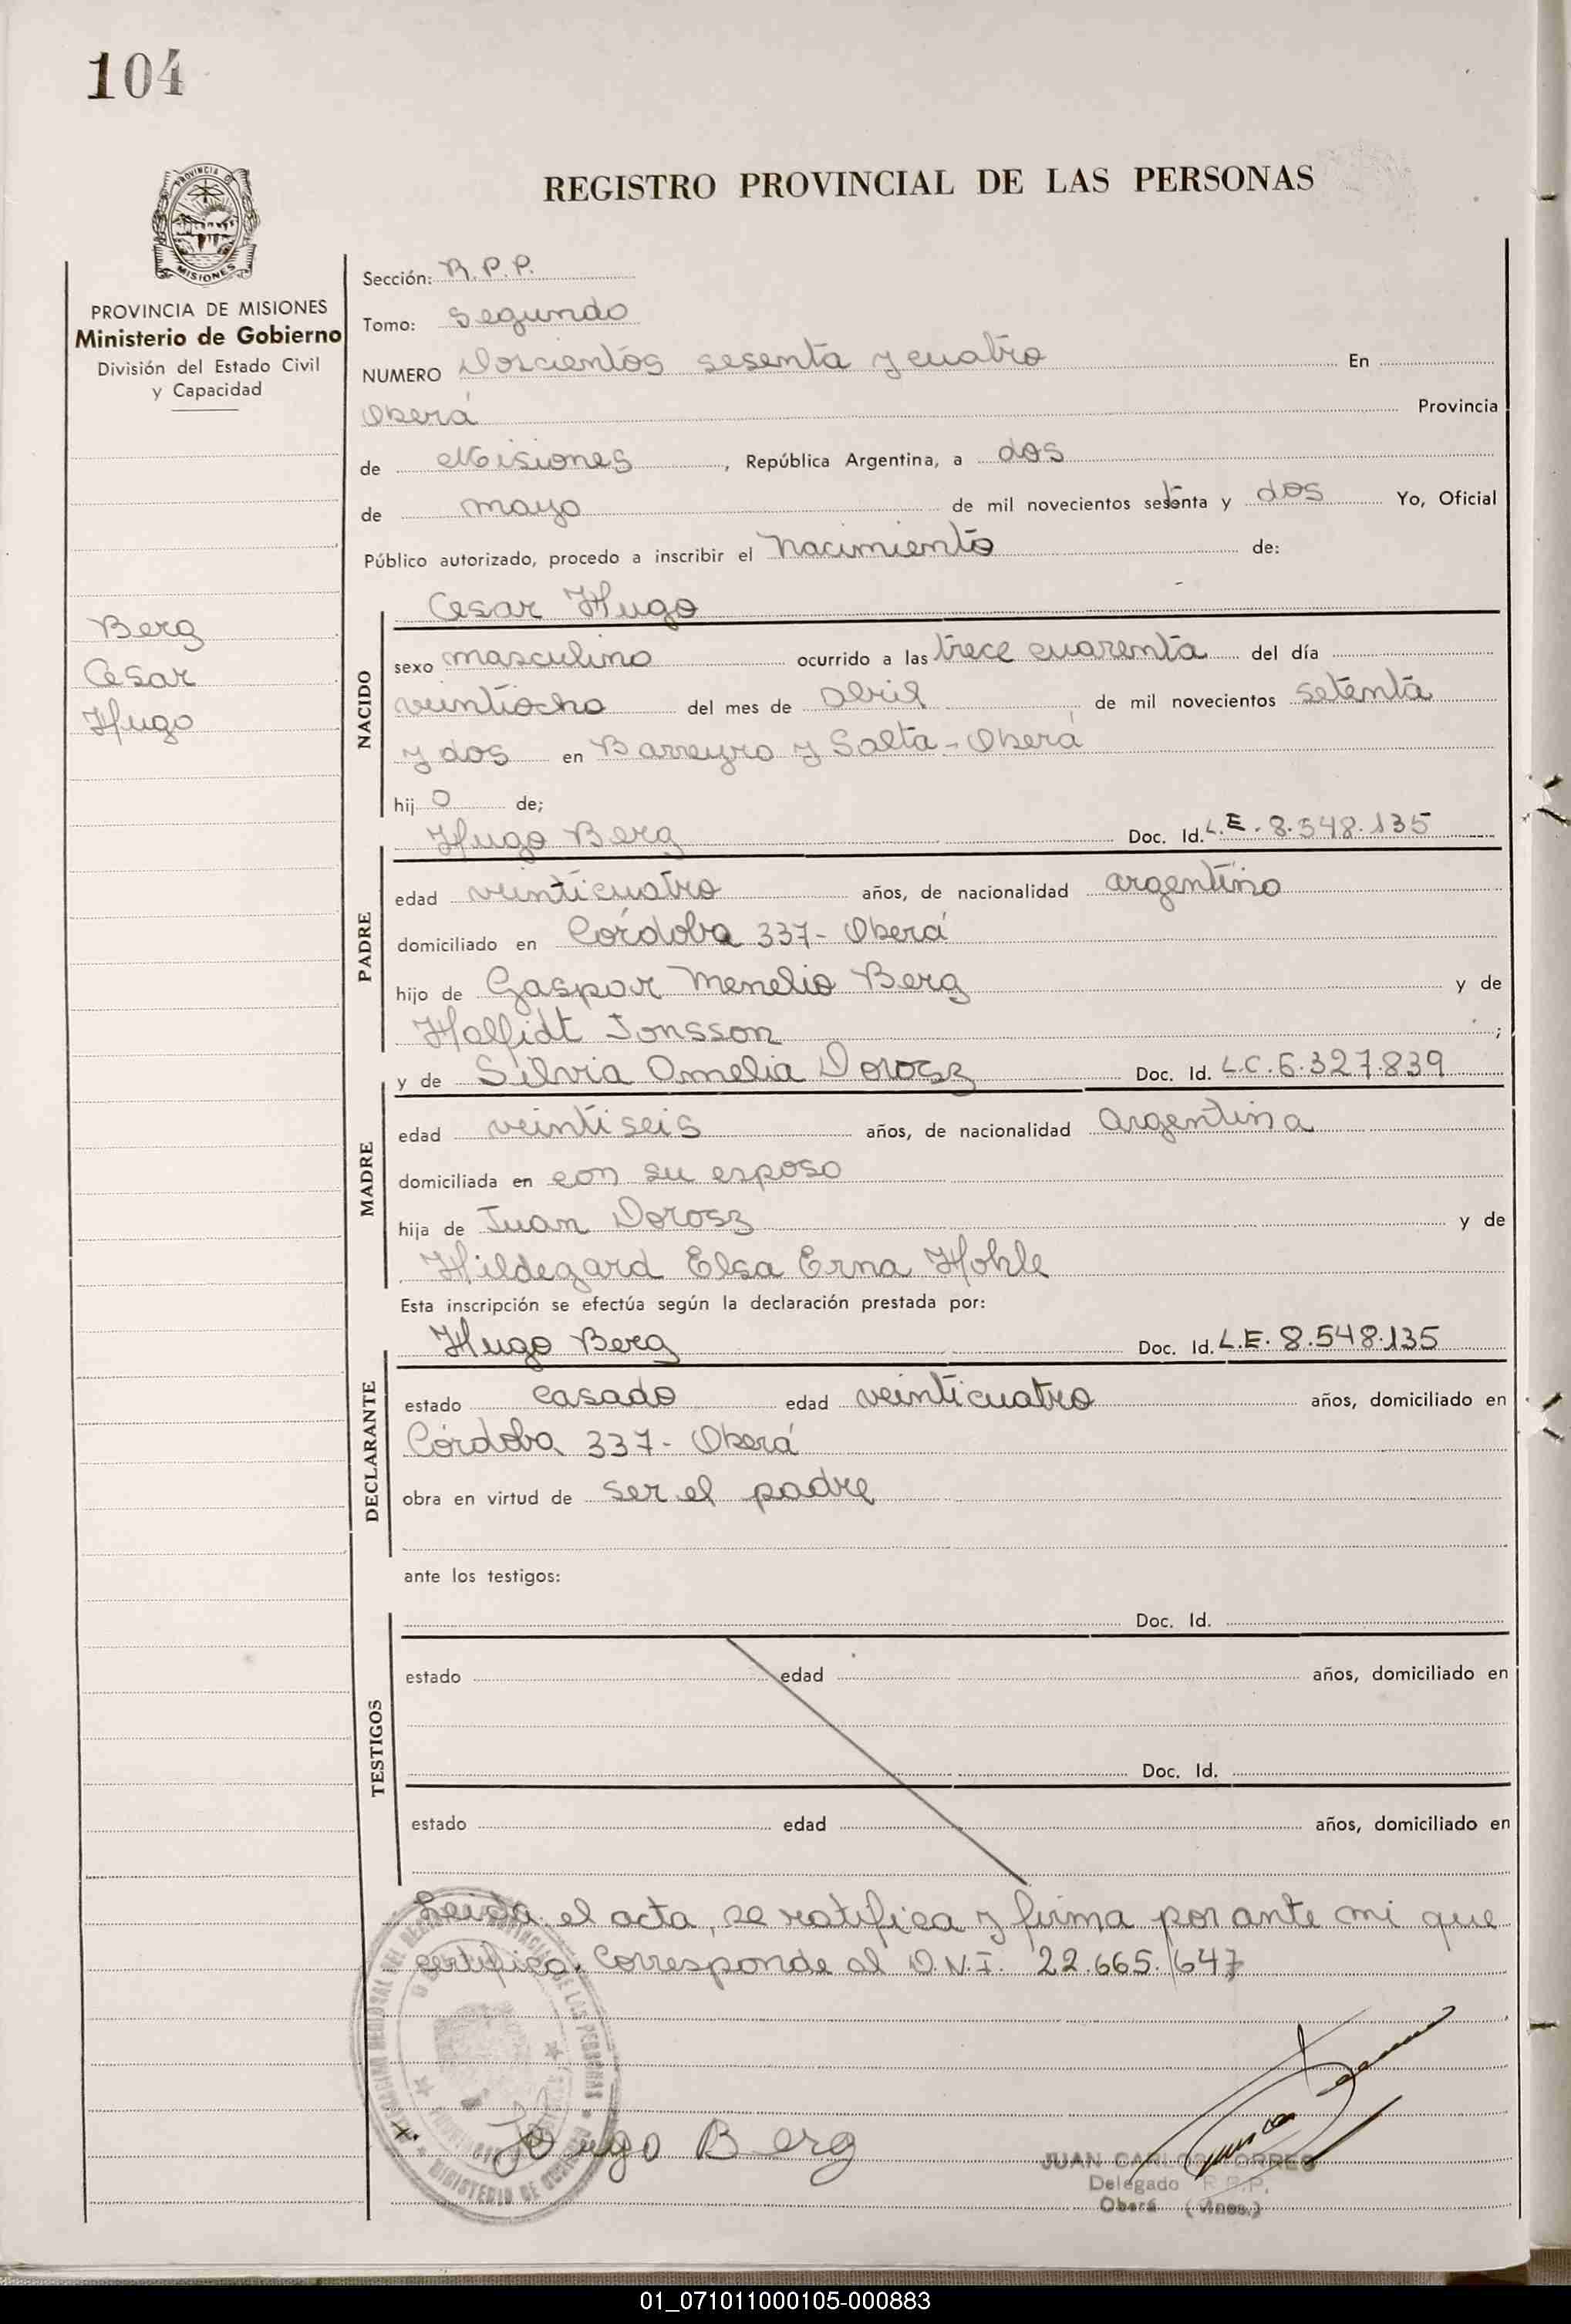 104
PROVINCIA DE MISIONES
REGISTRO PROVINCIAL DE LAS PERSONAS
PROVINCIA DE MISIONES
Ministerio de Gobierno
División del Estado Civil
y Capacidad
Berg
Cesar
Hugo
Sección: R.P.P.
Tomo: Segundo
NUMERO Doscientos sesenta y cuatro En
Oberá Provincia
de Misiones, República Argentina, a dos
de mayo de mil novecientos setenta y dos Yo, Oficial
Público autorizado, procedo a inscribir el Nacimiento de:
NACIDO
Cesar Hugo
sexo masculino ocurrido a las trece cuarenta del día
veintiocho del mes de abril de mil novecientos setenta
y dos en Barreyro y Salta - Oberá
hij o de;
PADRE
Hugo Berg Doc. Id. L.E. 8.548.135
edad veinticuatro años, de nacionalidad argentino
domiciliado en Córdoba 337- Oberá
hijo de Gaspar Menelio Berg y de
Halfidt Jonsson;
MADRE
y de Silvia Amelia Dorosz Doc. Id. L.C. 6.327.839
edad veintiseis años, de nacionalidad argentina
domiciliada en con su esposo
hija de Juan Dorosz y de
Hildegard Elsa Erna Hohle
Esta inscripción se efectúa según la declaración prestada por:
DECLARANTE
Hugo Berg Doc. Id. L.E. 8.548.135
estado casado edad veinticuatro años, domiciliado en
Córdoba 337- Oberá
obra en virtud de ser el padre
ante los testigos:
TESTIGOS
Doc. Id.
estado edad años, domiciliado en
Doc. Id.
estado edad años, domiciliado en
Leida el acta, se ratifica y firma por ante mi que
certifico. Corresponde al D.N.I. 22.665.647
x. Hugo Berg
JUAN CARLOS TORRES
Delegado R.P.P.
Oberá (Mnes.)
01_071011000105-000883